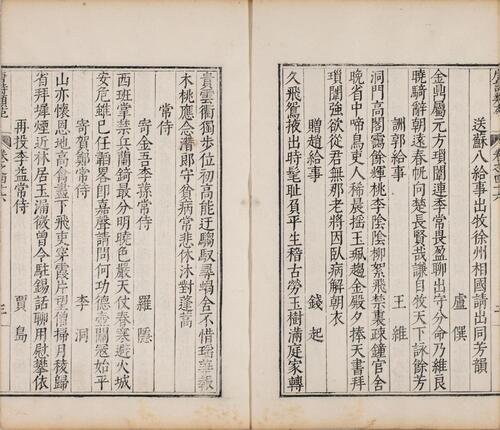 送蘇八給事出牧徐州相國請出同芳韻
盧僎
金鼎屬元方瑣闈連季常畏盈聊出守分命乃維良
曉騎辭朝遠春帆向楚長賢哉謙自牧天下詠餘芳
詶郭給事　王維
洞門高閣靄餘輝桃李陰陰柳絮飛禁裏疎鐘官舍
晚省中啼鳥吏人稀晨搖玉珮趨金殿夕捧天書拜
瑣闈強欲從君無那老將因臥病解朝衣
贈趙給事　錢起
久飛鴛掖出時髦恥負平生稽古勞玉樹滿庭家轉
貴雲衢獨步位初高能迂驄馭尋蝸舍不惜瑤華報
木桃應念潛郎守貧病常悲休沐對蓬蒿
常侍
寄金吾李蓀常侍　羅隱
西班掌禁兵蘭錡最分明曉色嚴天仗春寒避火城
安危雖已任韜畧即嘉聲請問何功德壺關冠始平
寄賀鄭常侍　李洞
山亦懷恩地高禽盡下飛吏穿霞片望僧掃月稜歸
省拜墀煙近林居玉漏微曾令駐錫話聊用慰攀依
再投李益常侍　賈島